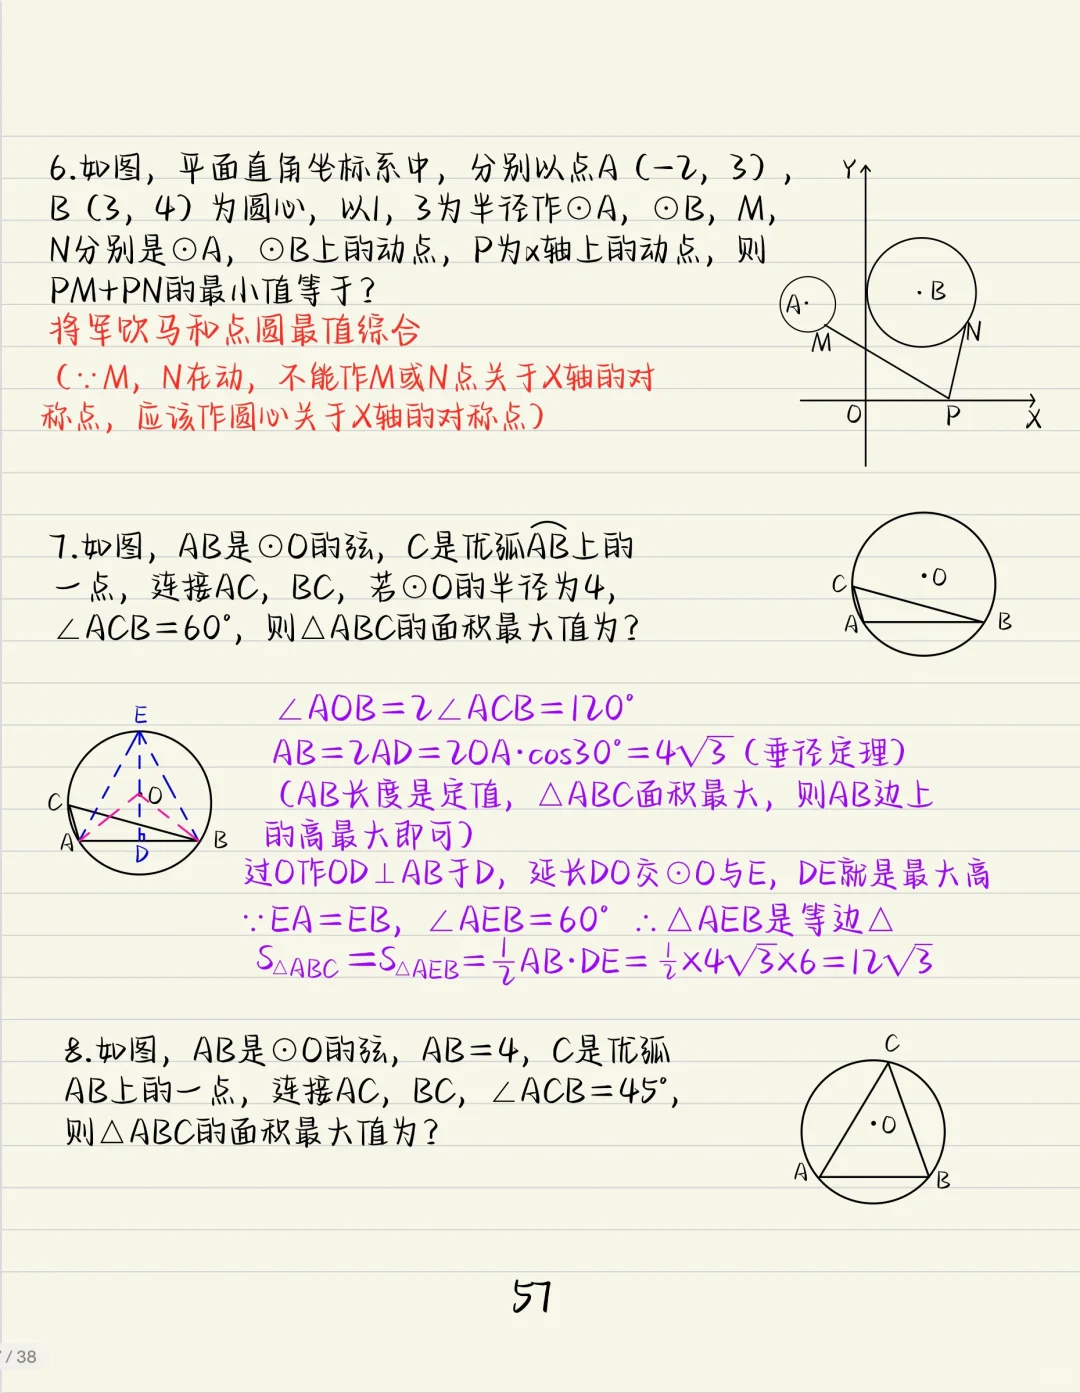 6.如图，平面直角坐标系中，分别以点A（-2，3），
B（3，4）为圆心，以1，3为半径作⊙A，⊙B，M，
N分别是⊙A，⊙B上的动点，P为x轴上的动点，则
PM+PN的最小值等于？
将军饮马和点圆最值综合
（∵M，N在动，不能作M或N点关于X轴的对
称点，应该作圆心关于X轴的对称点）
Y
A
B
M
N
O
P
X
7.如图，AB是⊙O的弦，C是优弧AB上的
一点，连接AC，BC，若⊙O的半径为4，
∠ACB=60°，则△ABC的面积最大值为？
O
C
A
B
E
C
O
A
D
B
∠AOB=2∠ACB=120°
AB=2AD=2OA·cos30°=4√3（垂径定理）
（AB长度是定值，△ABC面积最大，则AB边上
的高最大即可）
过O作OD⊥AB于D，延长DO交⊙O与E，DE就是最大高
∵EA=EB，∠AEB=60° ∴△AEB是等边△
S△ABC=S△AEB=½AB·DE=½×4√3×6=12√3
8.如图，AB是⊙O的弦，AB=4，C是优弧
AB上的一点，连接AC，BC，∠ACB=45°，
则△ABC的面积最大值为？
C
O
A
B
57
/ 38